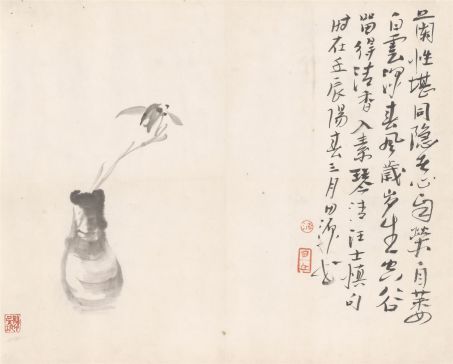 蘭性堪同隐者心自榮自萎
白雲深春風歲岁生空谷
留得清香入素琴清汪士慎句
时在壬辰陽春三月田源